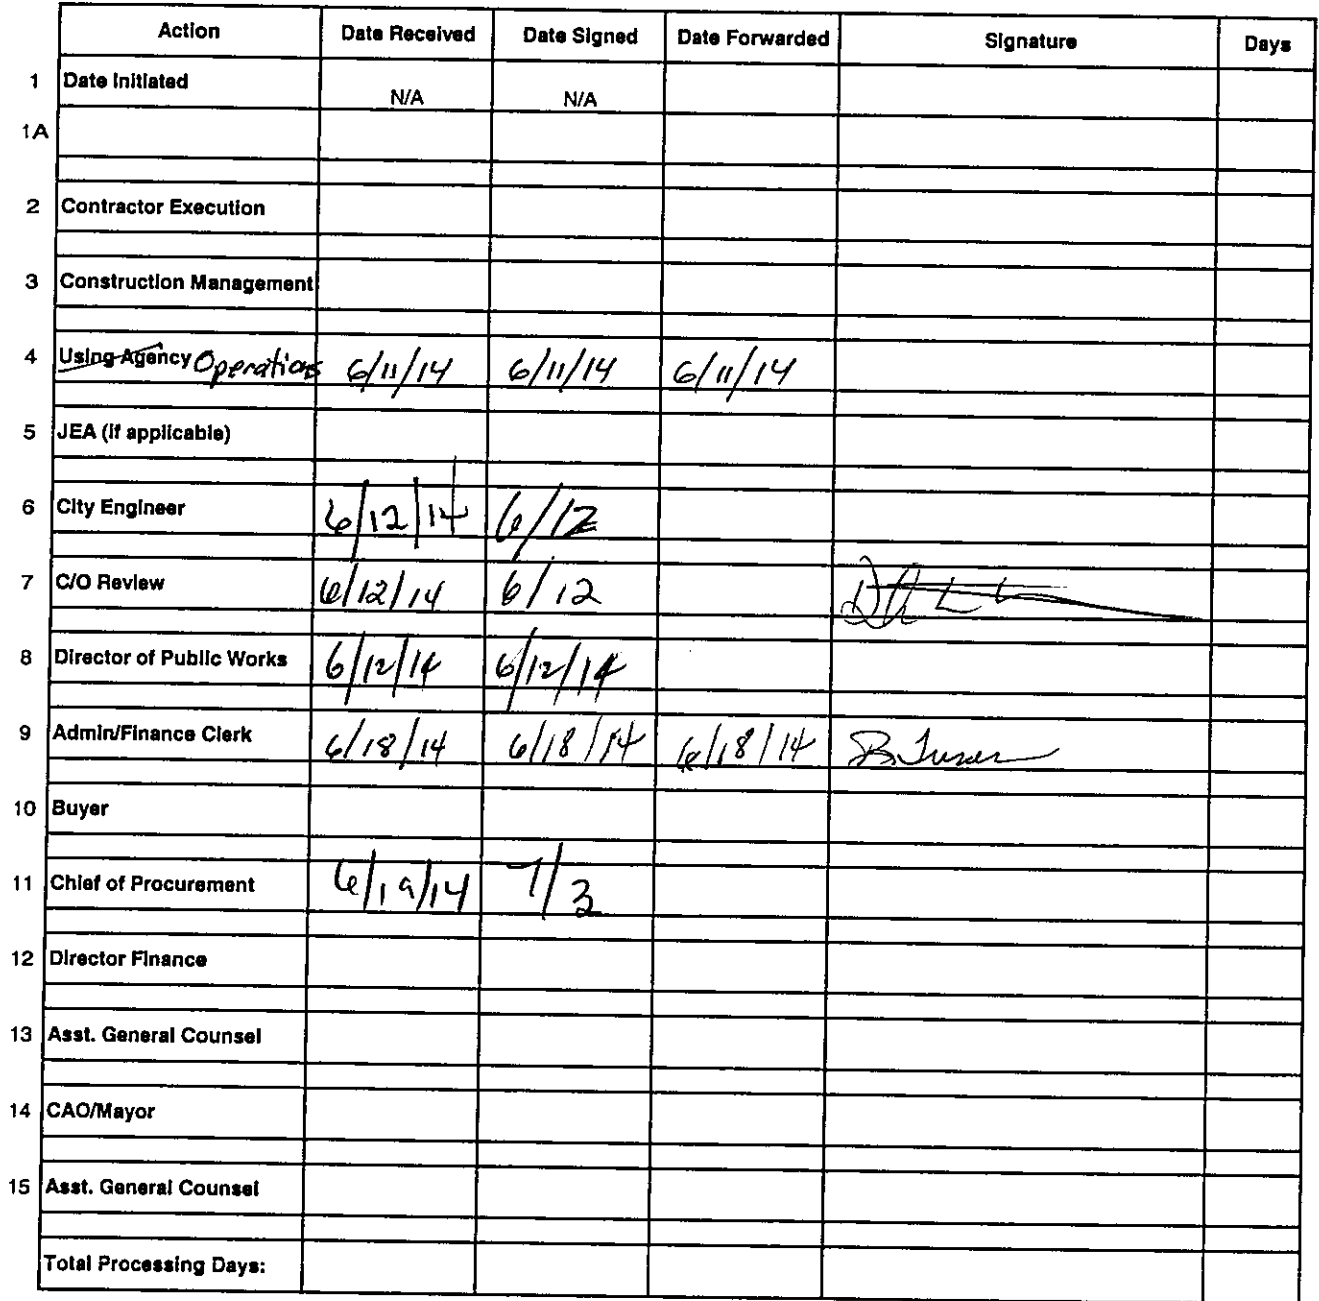 Action Date Received Date Signed Date Forwarded Signature Days
1 Date Initiated N/A N/A
1A
2 Contractor Execution
3 Construction Management
4 Using Agency Operations 6/11/14 6/11/14 6/11/14
5 JEA (if applicable)
6 City Engineer 6/12/14 6/12
7 C/O Review 6/12/14 6/12
8 Director of Public Works 6/12/14 6/12/14
9 Admin/Finance Clerk 6/18/14 6/18/14 6/18/14
10 Buyer
11 Chief of Procurement 6/19/14 7/3
12 Director Finance
13 Asst. General Counsel
14 CAO/Mayor
15 Asst. General Counsel
Total Processing Days: